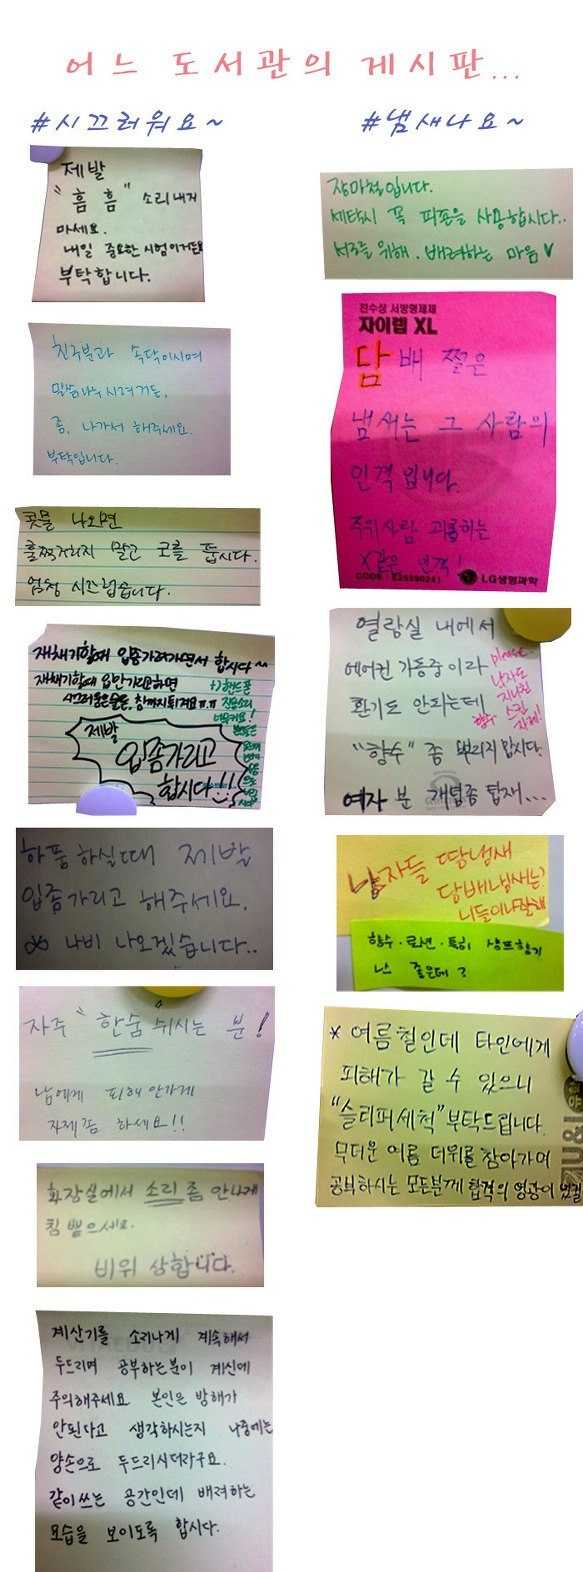 어느 도서관의 게시판...
#시끄러워요~
제발
"흠 흠" 소리내지
마세요.
내일 중요한 시험이거든요
부탁합니다.
친구분과 속닥이시며
말씀나누시려거든,
좀, 나가서 해주세요.
부탁입니다.
콧물 나오면
훌쩍거리지 말고 코를 풉시다.
엄청 시끄럽습니다.
재채기할때 입좀가려가면서 합시다^^
재채기할때 입안가리고하면
시끄러운은둘은, 침까지튀겨요ㅠ.ㅠ
+) 핸드폰
진동소리
너무커요!
제발
입좀가리고
합시다!!
하품 하실때 제발
입좀가리고 해주세요.
나비 나오겠습니다..
자주 "한숨 쉬시는 분!
남에게 피해 안가게
자제좀 하세요!!
화장실에서 소리 좀 안나게
침 뱉으세요.
비위 상합니다.
계산기를 소리나게 계속해서
두드리며 공부하는분이 계신데
주의해주세요 본인은 방해가
안된다고 생각하시는지 나중에는
양손으로 두드리시더라구요.
같이쓰는 공간인데 배려하는
모습을 보이도록 합시다.
#냄새나요~
장마철입니다.
세탁시 꼭 피죤을 사용합시다..
서로를 위해. 배려하는 마음♥
전수상 서방형제제
자이렙 XL
담배 쩔은
냄새는 그 사람의
인격입니다.
주위사람 괴롭히는
X같은 인격!
LG생명과학
열람실 내에서
에어컨 가동중이라
환기도 안되는데
"향수" 좀 뿌리지 맙시다.
여자 분 개념좀 탑재...
please
남자도
지나친
향수
스킨
자제!
남자들 땀냄새
담배냄새는?
니들이나잘해
향수·로션·특히 샴프향기
좋은데?
* 여름철인데 타인에게
피해가 갈 수 있으니
"슬리퍼세척" 부탁드립니다.
무더운 여름 더위를 참아가며
공부하시는 모든분께 합격의 영광이 있길